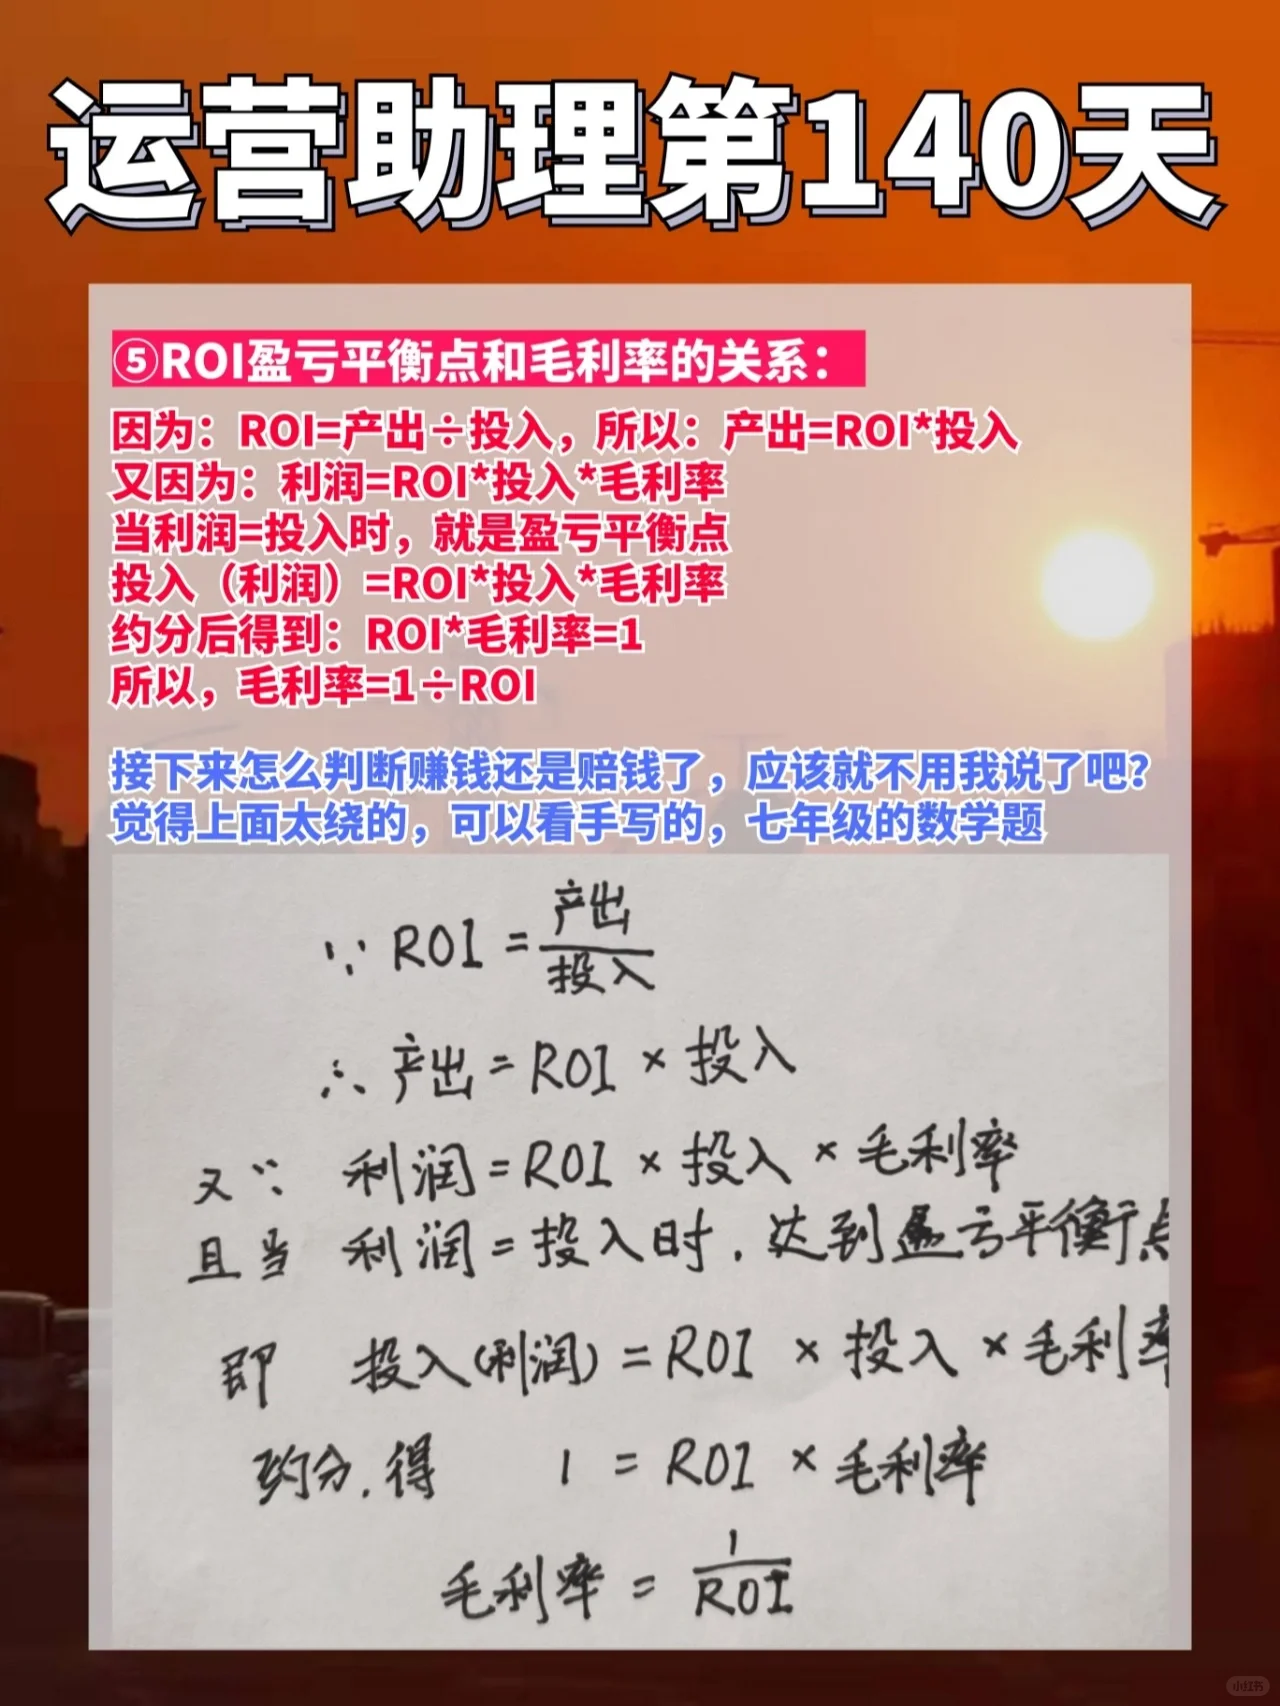 运营助理第140天
⑤ROI盈亏平衡点和毛利率的关系：
因为：ROI=产出÷投入，所以：产出=ROI*投入
又因为：利润=ROI*投入*毛利率
当利润=投入时，就是盈亏平衡点
投入（利润）=ROI*投入*毛利率
约分后得到：ROI*毛利率=1
所以，毛利率=1÷ROI
接下来怎么判断赚钱还是赔钱了，应该就不用我说了吧？
觉得上面太绕的，可以看手写的，七年级的数学题
∵ ROI = 产出/投入
∴ 产出 = ROI × 投入
又∵ 利润 = ROI × 投入 × 毛利率
且当 利润 = 投入时．达到盈亏平衡点
即 投入(利润) = ROI × 投入 × 毛利率
约分．得 1 = ROI × 毛利率
毛利率 = 1/ROI
小红书